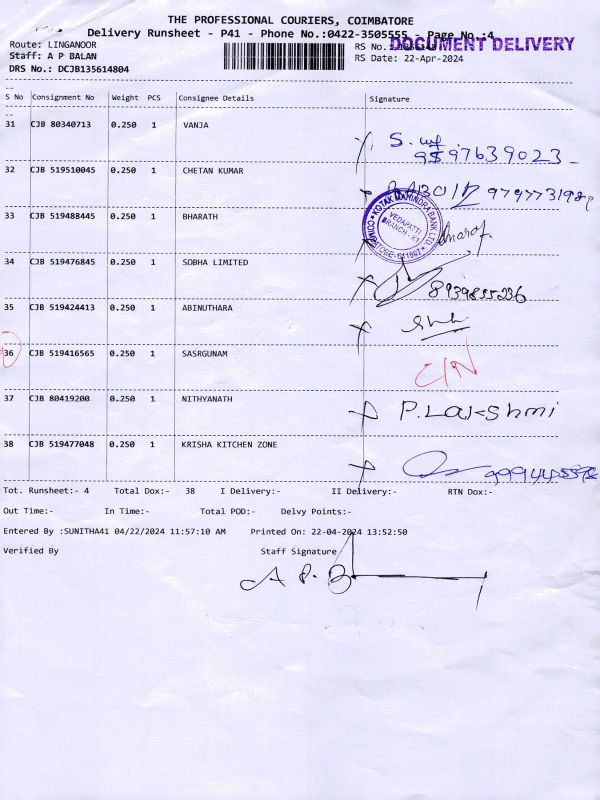 THE PROFESSIONAL COURIERS, COIMBATORE
Delivery Runsheet - P41 - Phone No.:0422-3505555 - Page No.:4
Route: LINGANOOR RS No.:
DOCUMENT DELIVERY
Staff: A P BALAN RS Date: 22-Apr-2024
DRS No.: DCJB135614804
S No Consignment No Weight PCS Consignee Details Signature
31 CJB 80340713 0.250 1 VANJA
32 CJB 519510045 0.250 1 CHETAN KUMAR
KOTAK MAHINDRA BANK LTD
VEDAPATTI
BRANCH - K1
33 CJB 519488445 0.250 1 BHARATH
34 CJB 519476845 0.250 1 SOBHA LIMITED 8939855236
35 CJB 519424413 0.250 1 ABINUTHARA
36 CJB 519416565 0.250 1 SASRGUNAM C/N
37 CJB 80419200 0.250 1 NITHYANATH P. Lakshmi
38 CJB 519477048 0.250 1 KRISHA KITCHEN ZONE
Tot. Runsheet:- 4 Total Dox:- 38 I Delivery:- II Delivery:- RTN Dox:-
Out Time:- In Time:- Total POD:- Delvy Points:-
Entered By :SUNITHA41 04/22/2024 11:57:10 AM Printed On: 22-04-2024 13:52:50
Verified By Staff Signature
A P. B